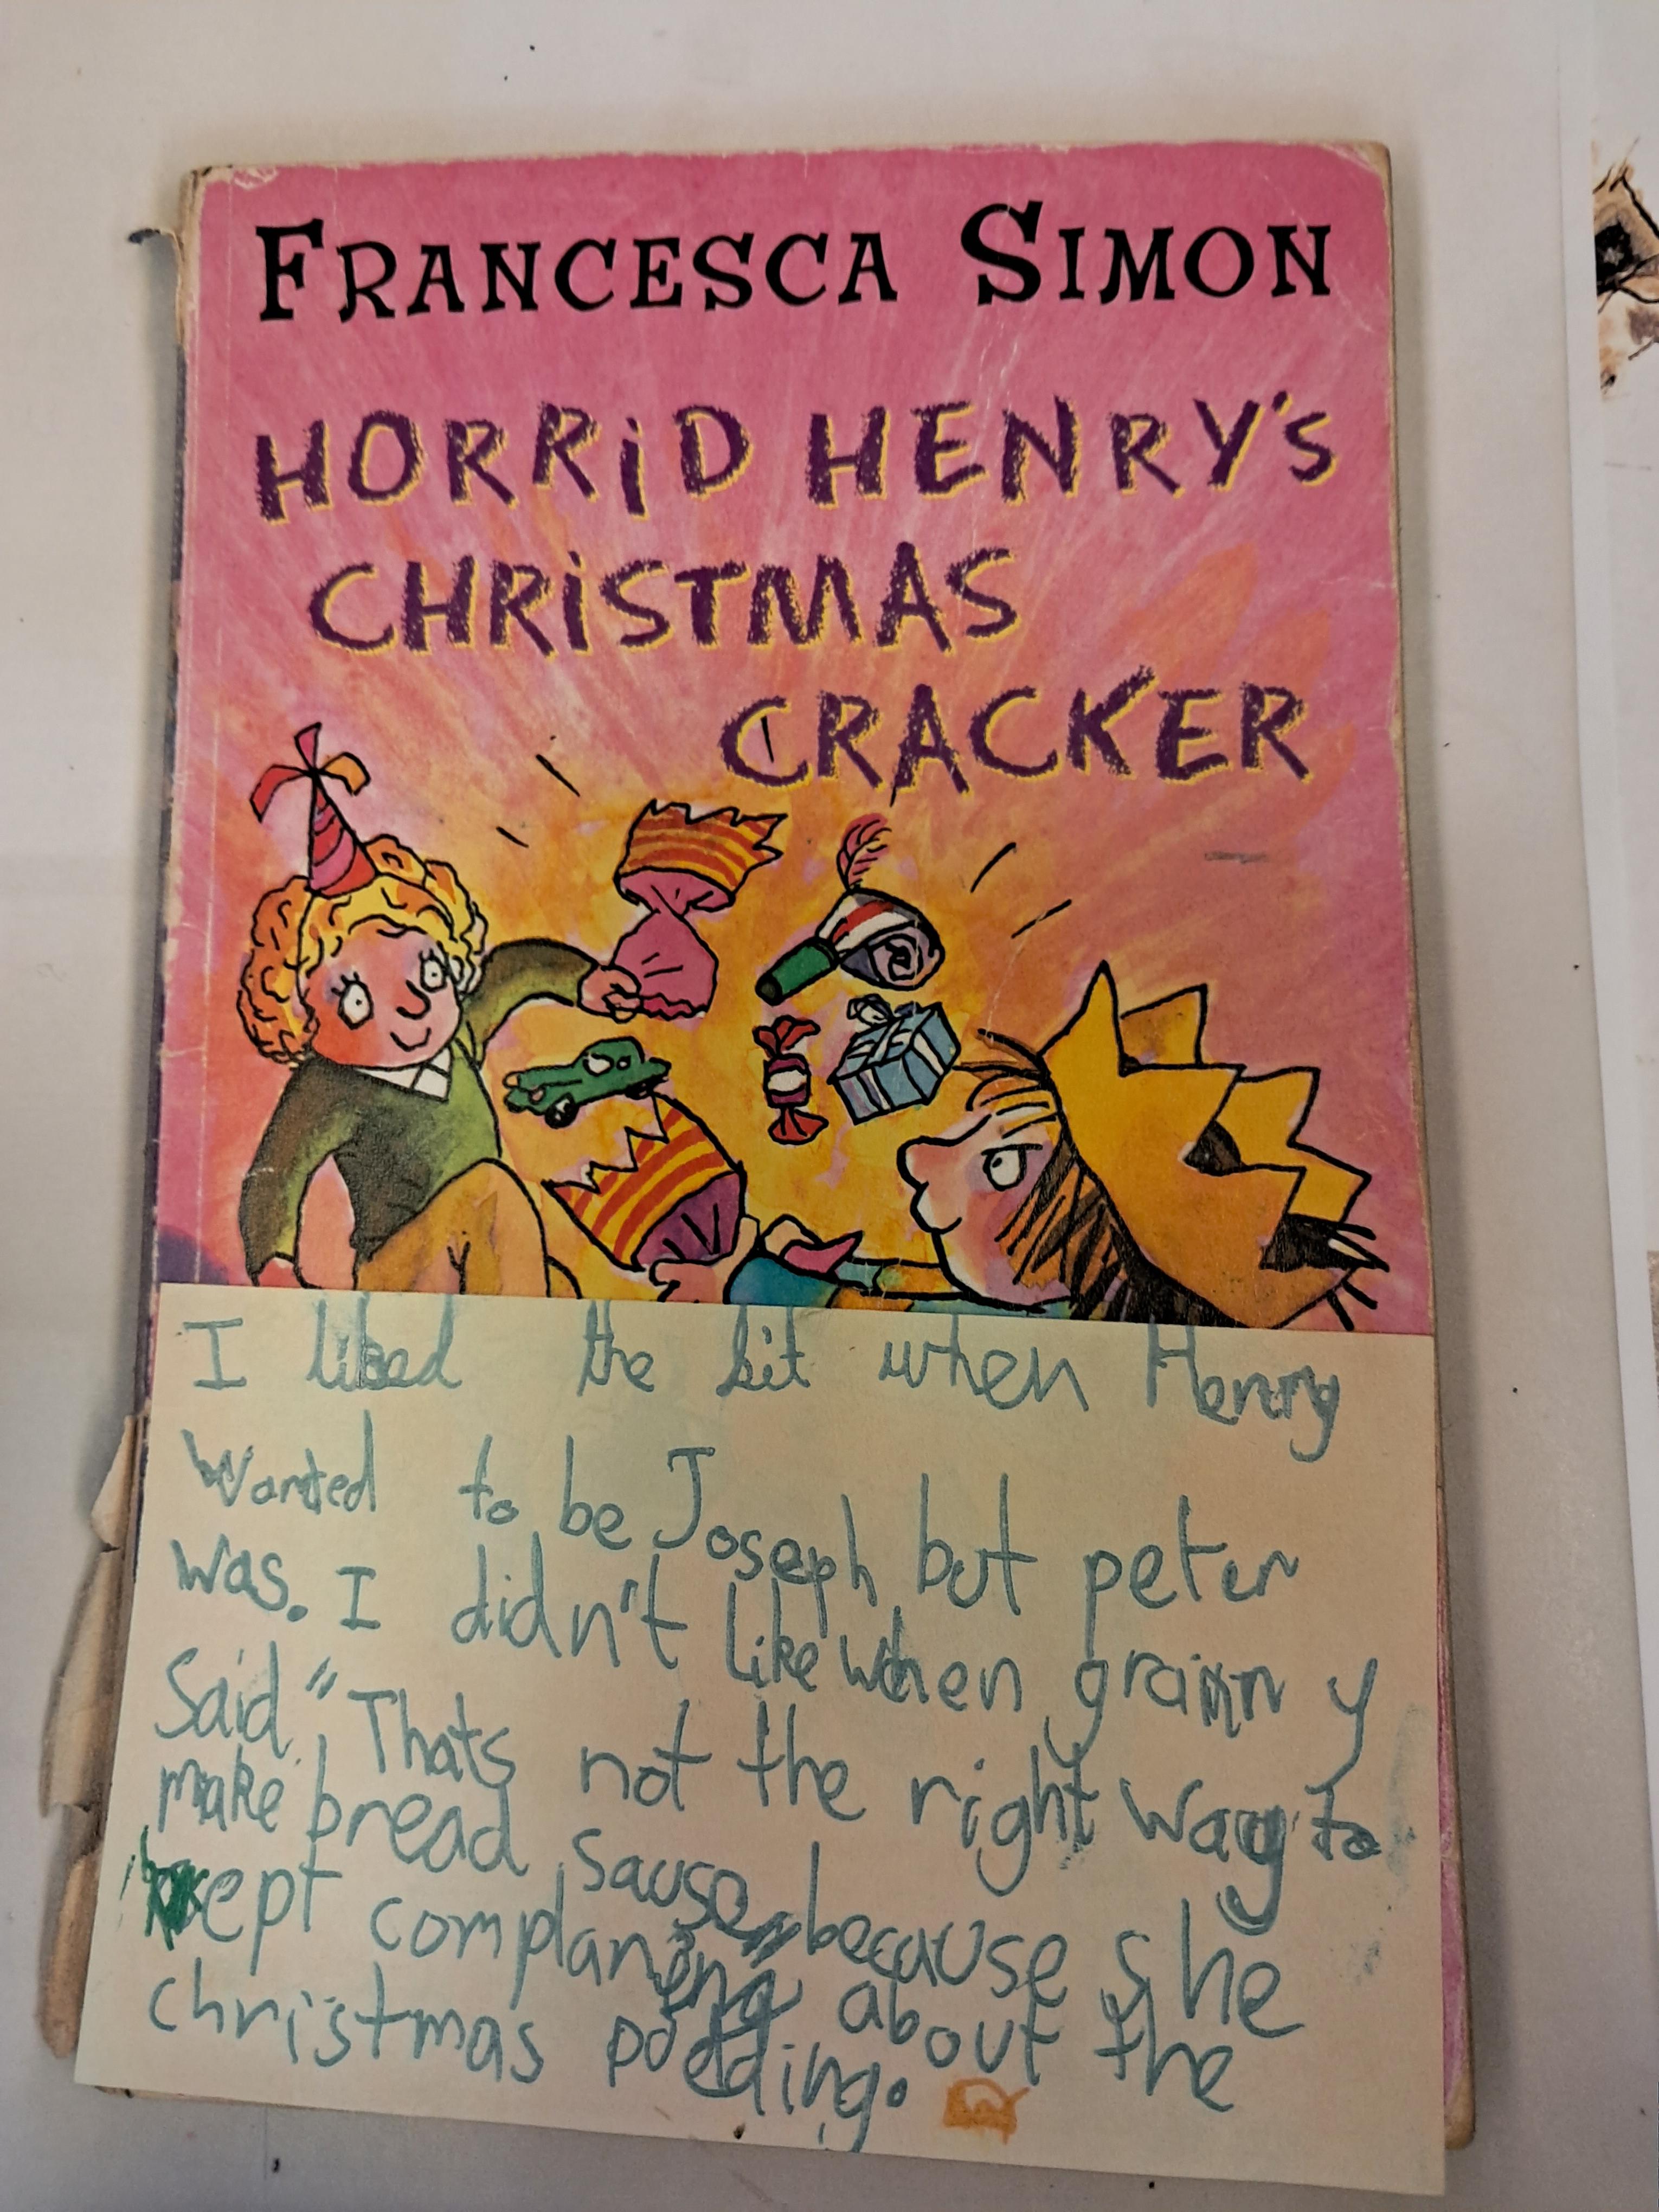 FRANCESCA SIMON
HORRID HENRY'S
CHRISTMAS
CRACKER
I liked the bit when Henry
wanted to be Joseph but peter
was. I didn't like when granny
Said "Thats not the right way to
make bread sause, because she
kept complaning about the
christmas podding.